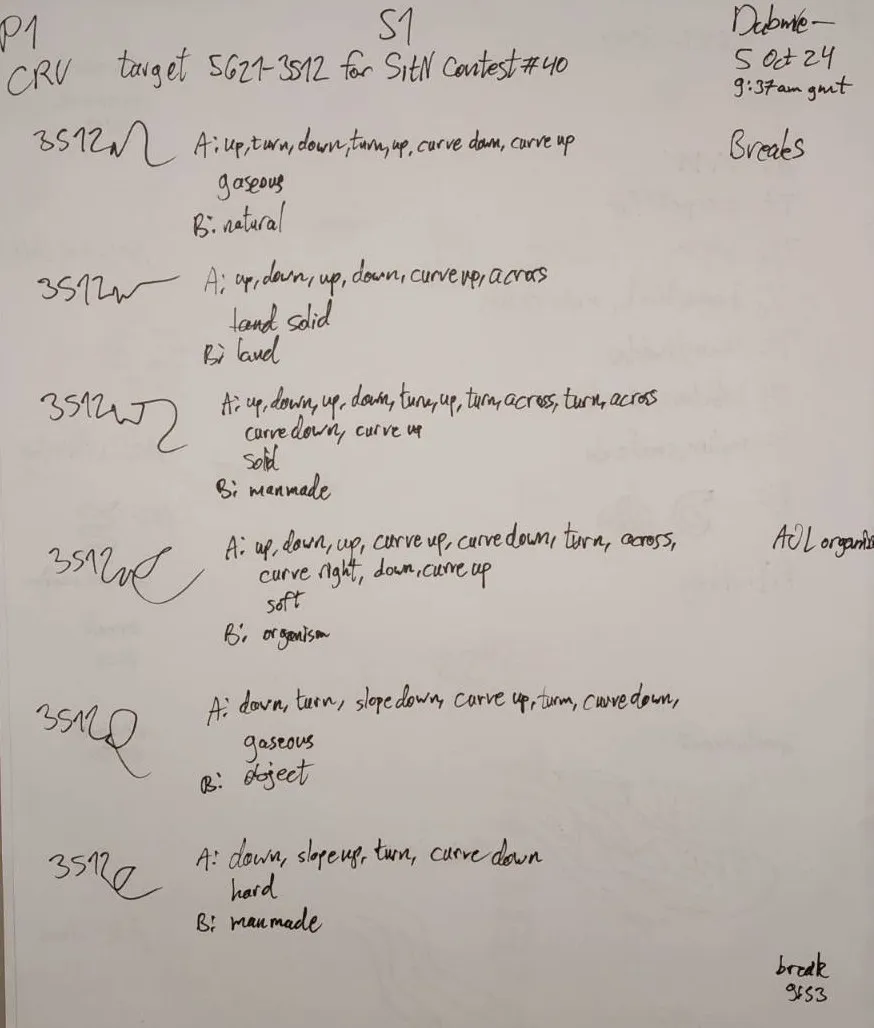 P1 S1 Dabmre
CRV target 5621-3512 for SitN Contest #40 5 Oct 24
9:37am gmt
Breaks
3512 A: up, turn, down, turn, up, curve down, curve up
gaseous
B: natural
3512 A: up, down, up, down, curve up, across
solid
B: land
3512 A: up, down, up, down, turn, up, turn, across, turn, across
curve down, curve up
solid
B: manmade
3512 A: up, down, up, curve up, curve down, turn, across, AOL organis
curve right, down, curve up
soft
B: organism
3512 A: down, turn, slope down, curve up, turn, curve down,
gaseous
B: object
3512 A: down, slope up, turn, curve down
hard
B: manmade
break
9:53